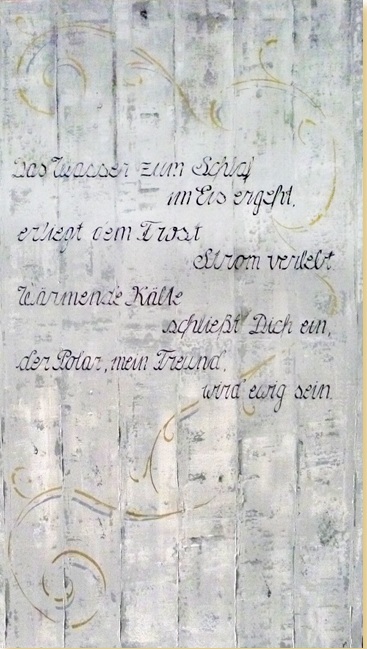 Das Wasser zum Schlaf
im Eis ergeht,
erliegt dem Frost
Strom verlebt
Wärmende Kälte
schließt Dich ein,
der Polar, mein Freund,
wird ewig sein